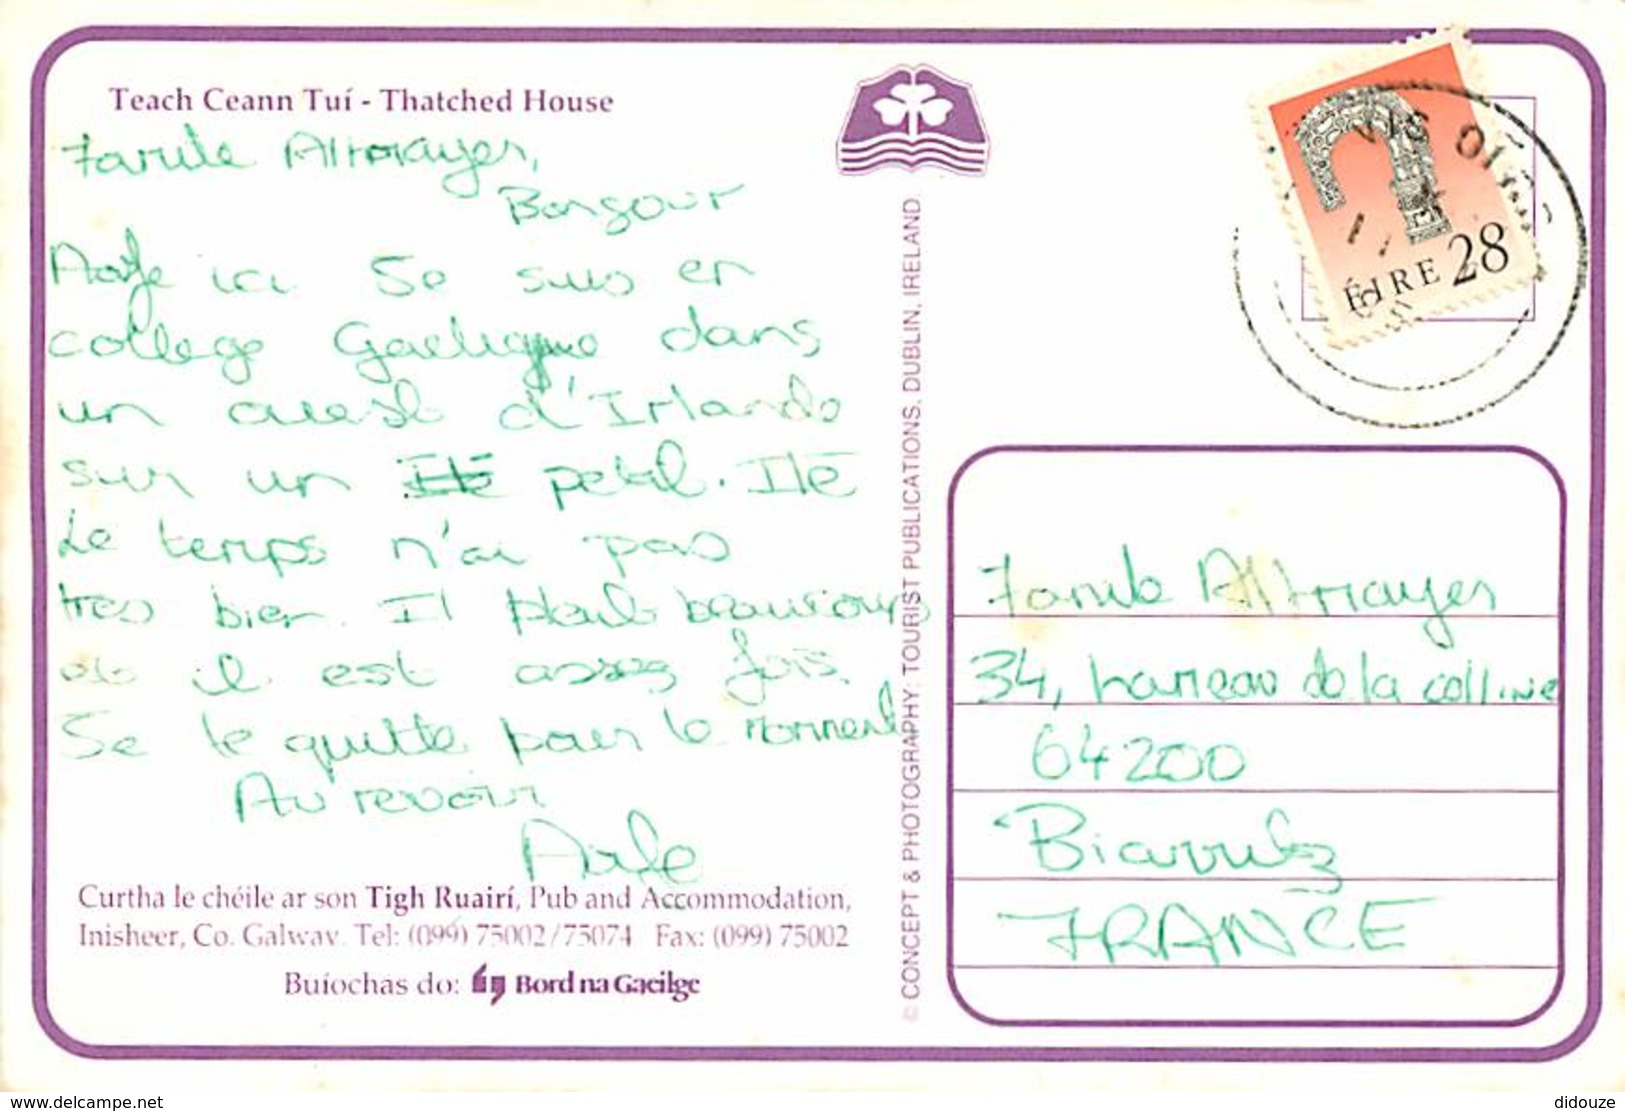 Teach Ceann Tuí - Thatched House
Famile Altmayer,
Bonsour
Aoife ici Se suis en
college Gaelique dans
un ouest d'Irlande
sur un petit. Ile
Le temps n'ai pas
tres bien. Il pleut beaucoup
et il est assez fois.
Se te quitte pour le moment
Au revoir
Aoife
Curtha le chéile ar son Tigh Ruairí, Pub and Accommodation,
Inisheer, Co. Galway. Tel: (099) 75002/75074 Fax: (099) 75002
Buíochas do: Bord na Gaeilge
© CONCEPT & PHOTOGRAPHY: TOURIST PUBLICATIONS, DUBLIN, IRELAND
ÉIRE 28
Famile Altmayer
34, hameau de la colline
64200
Biarritz
FRANCE
https://www.delcampe.net
didouze